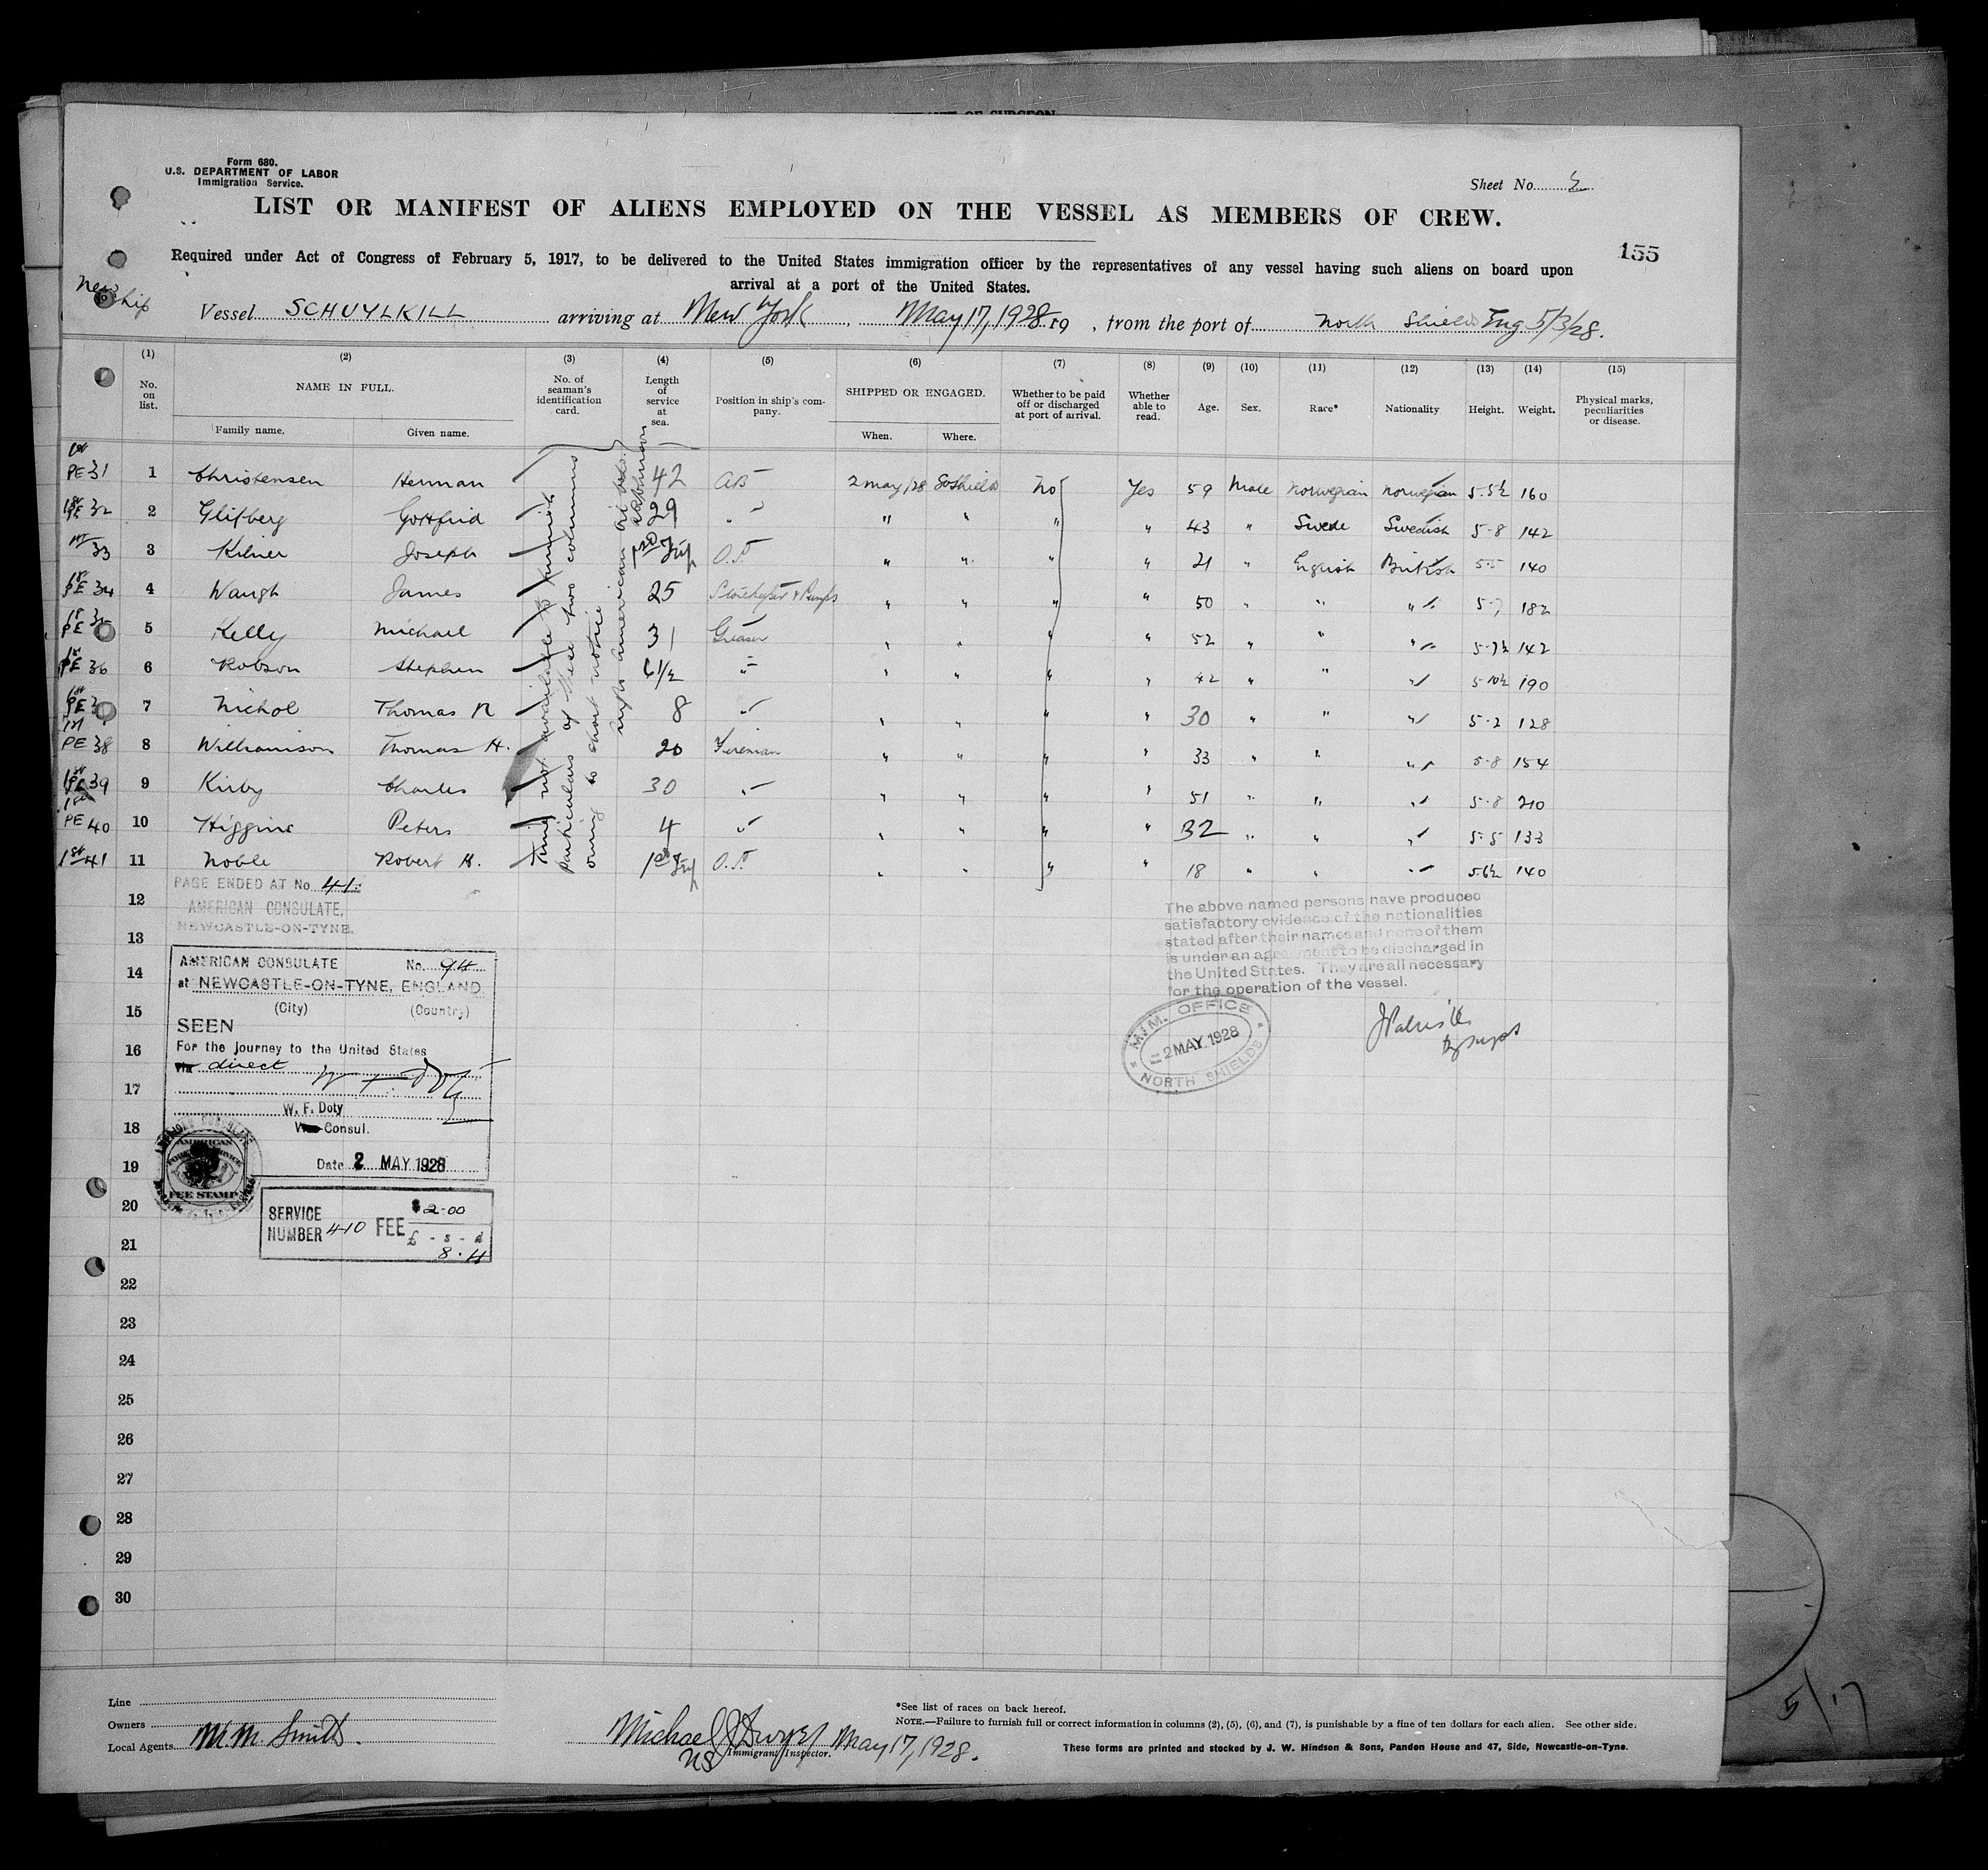 Form 680.
U.S. DEPARTMENT OF LABOR
Immigration Service.
Sheet No.
LIST OR MANIFEST OF ALIENS EMPLOYED ON THE VESSEL AS MEMBERS OF CREW.
155
Required under Act of Congress of February 5, 1917, to be delivered to the United States immigration officer by the representatives of any vessel having such aliens on board upon
arrival at a port of the United States.
new ship
Vessel SCHUYLKILL arriving at New York, May 17, 1928. 19 , from the port of North Shields Eng 5/3/28.
(1) (2) (3) (4) (5) (6) (7) (8) (9) (10) (11) (12) (13) (14) (15)
No. on list. NAME IN FULL. No. of seaman's identification card. Length of service at sea. Position in ship's company. SHIPPED OR ENGAGED. Whether to be paid off or discharged at port of arrival. Whether able to read. Age. Sex. Race* Nationality Height. Weight. Physical marks, peculiarities or disease.
Family name. Given name. When. Where.
1st PE 31 1 Christensen Herman 42 AB 2 may/28 So Shields No Yes 59 Male Norwegian Norwegian 5.5½ 160
1st PE 32 2 Glifberg Gottfrid 29 " " " " " 43 " Swede Swedish 5-8 142
1st 33 3 Kilner Joseph 1st Trip O.S " " " " 21 " English British 5-5 140
1st PE 34 4 Waugh James 25 Storekeeper & Pumps " " " " 50 " " " 5-7 182
1st PE 35 5 Kelly Michael 31 Greaser " " " " 52 " " " 5-7½ 142
1st PE 36 6 Robson Stephen 6½ " " " " " 42 " " " 5-10½ 190
1st PE 3 7 Nichol Thomas R 8 " " " " " 30 " " " 5-2 128
1st PE 38 8 Williamson Thomas H. 20 Fireman " " " " 33 " " " 5-8 154
1st PE 39 9 Kirby Charles 30 " " " " " 51 " " " 5-8 210
1st PE 40 10 Higgins Peters 4 " " " " " 32 " " " 5-5 133
1st 41 11 Noble Robert H. 1st Trip O.S " " " " 18 " " " 5-6½ 140
Time not available to furnish
particulars of these two columns
owing to short notice
PAGE ENDED AT No. 41
AMERICAN CONSULATE,
NEWCASTLE-ON-TYNE.
12
13
14
15
16
17
18
19
20
21
22
23
24
25
26
27
28
29
30
AMERICAN CONSULATE No. 94
at NEWCASTLE-ON-TYNE, ENGLAND.
(City) (Country)
SEEN
For the journey to the United States
via direct
W. F. Doty
Consul.
Date 2 MAY 1928
AMERICAN
FOREIGN SERVICE
FEE STAMP
SERVICE NUMBER 410 FEE $ 2-00
£ - s - d
8.4
The above named persons have produced
satisfactory evidence of the nationalities
stated after their names and none of them
is under an agreement to be discharged in
the United States. They are all necessary
for the operation of the vessel.
M.M. OFFICE
2 MAY 1928
NORTH SHIELDS
Line
Owners
Local Agents M.M. Smith.
Michael J Dwyer May 17, 1928.
US Immigrant Inspector.
*See list of races on back hereof.
NOTE.—Failure to furnish full or correct information in columns (2), (5), (6), and (7), is punishable by a fine of ten dollars for each alien. See other side.
These forms are printed and stocked by J. W. Hindson & Sons, Pandon House and 47, Side, Newcastle-on-Tyne.
5/17